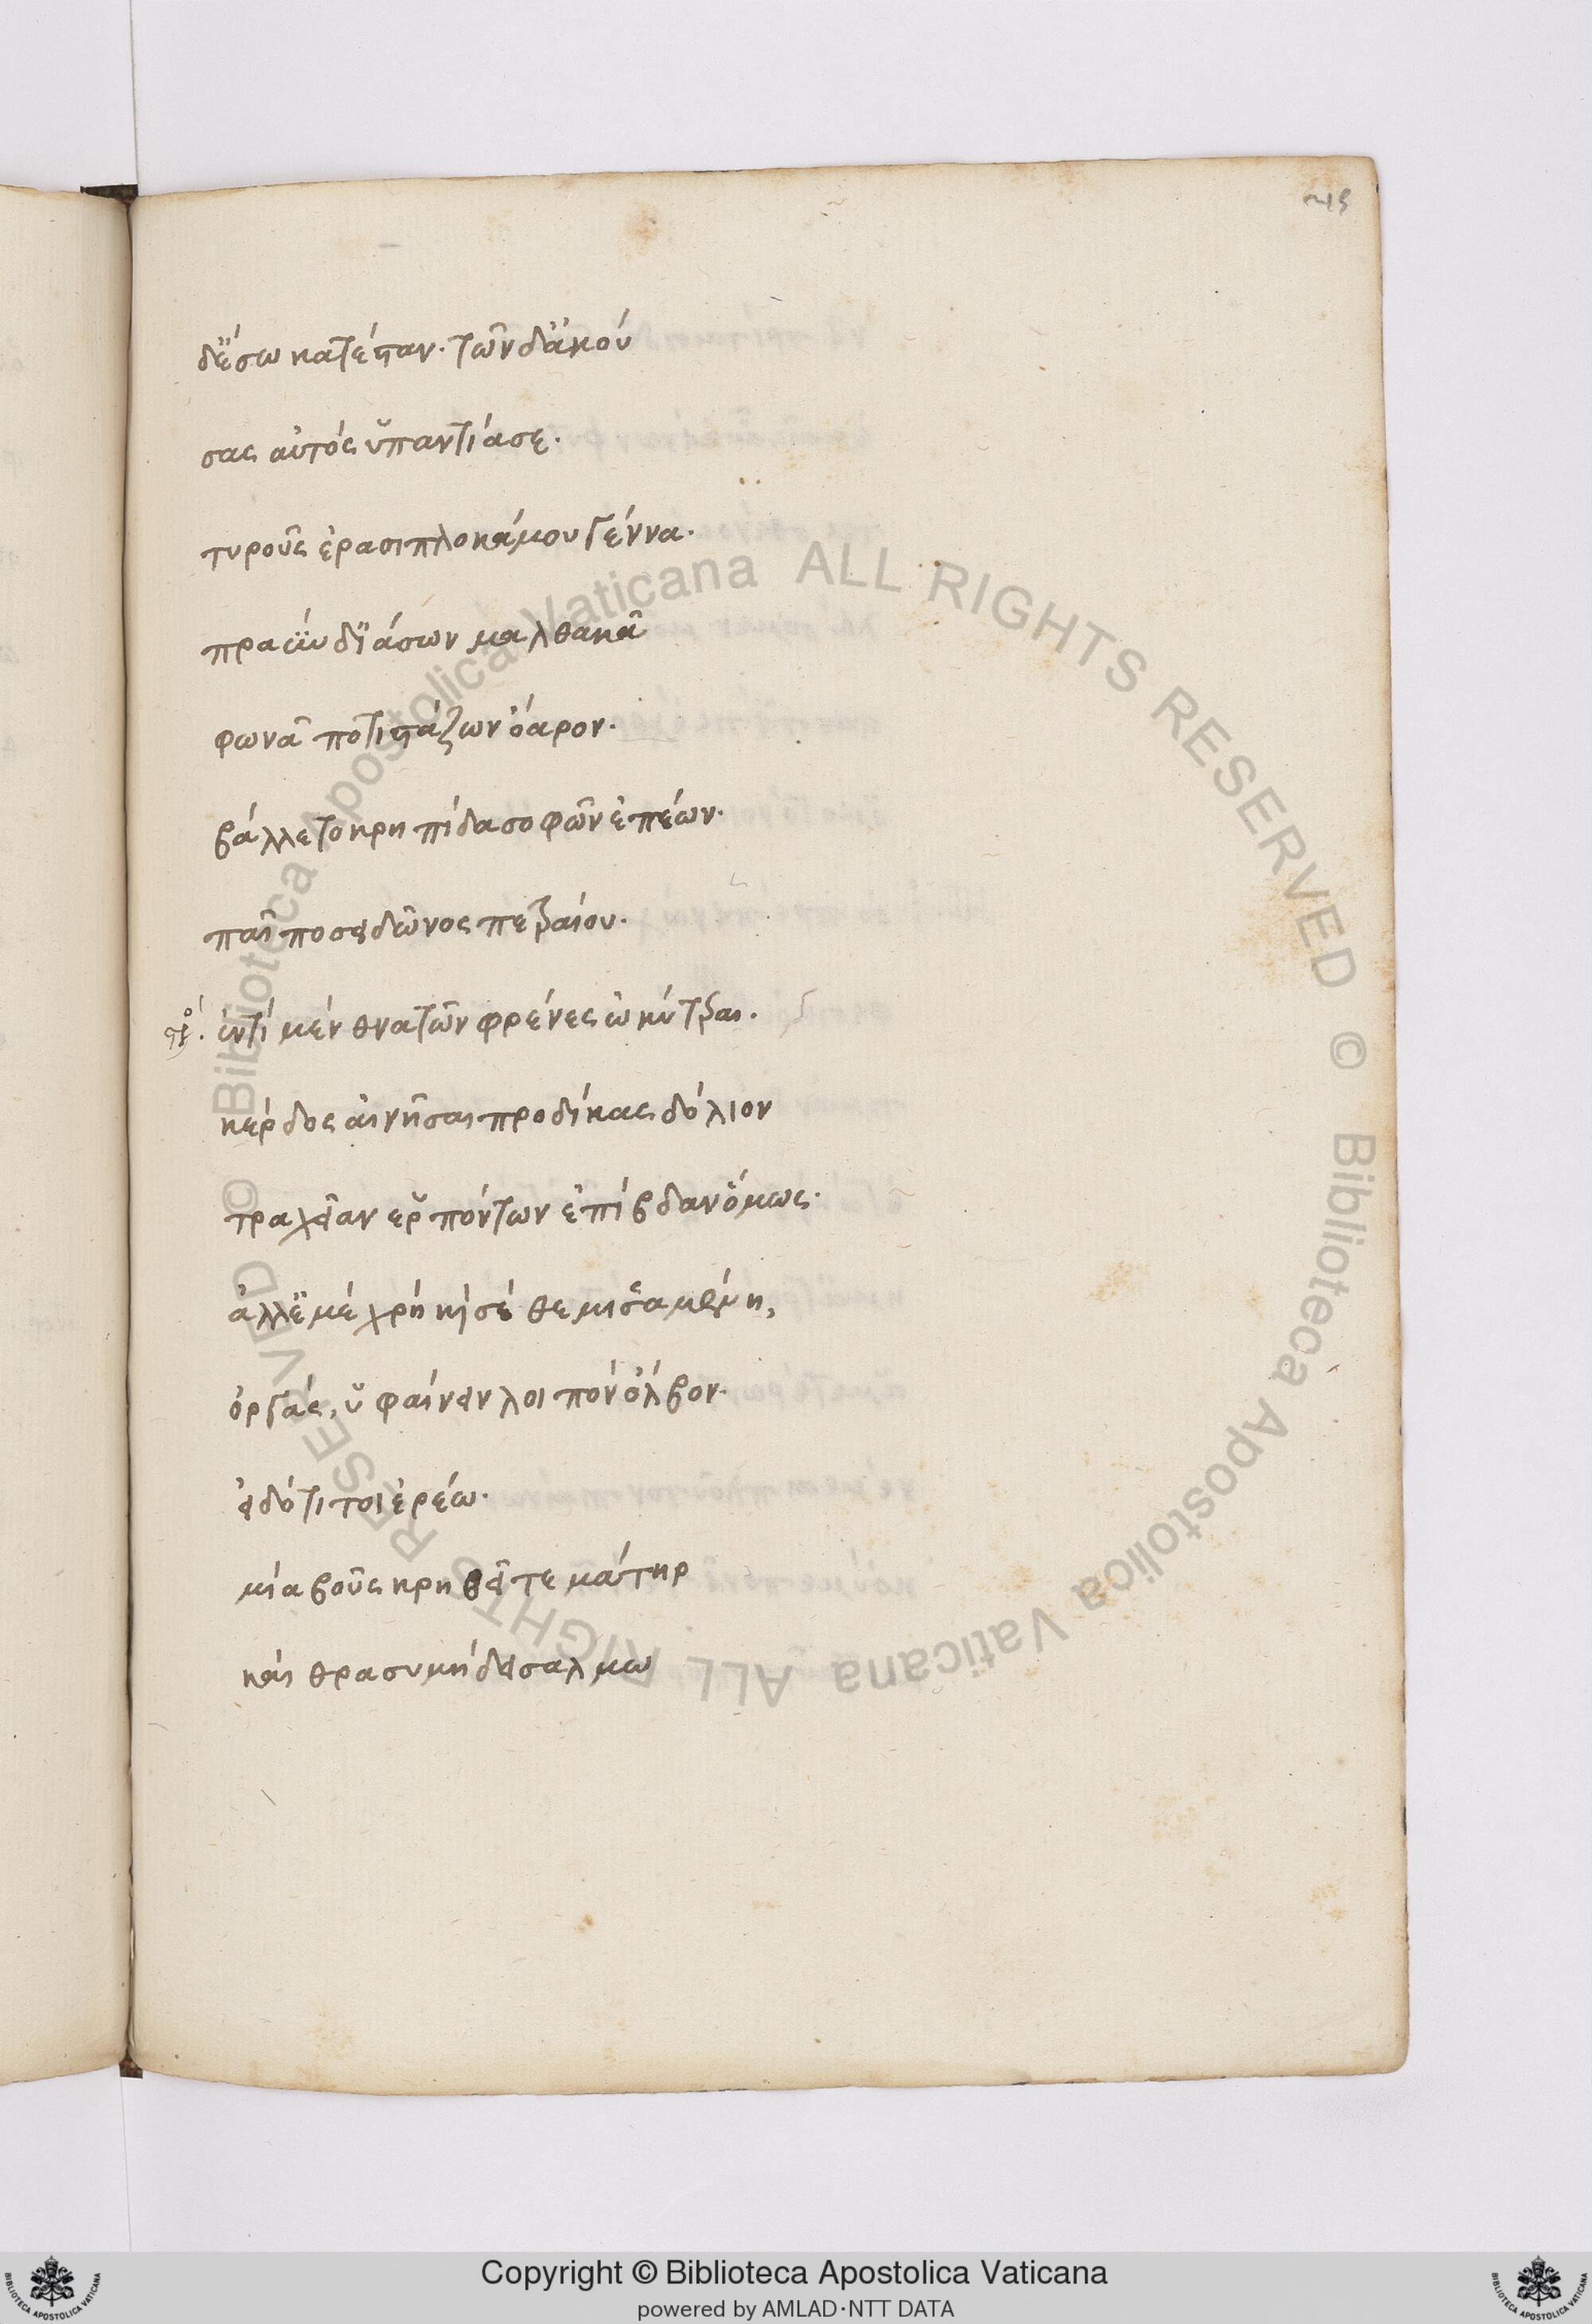 215
δ' ἔσω κατέσταν. τῶν δ' ἀκού
σας αὐτὸς ὑπαντίασε.
τυροῦς ἐρασιπλοκάμου γέννα.
πραΰν δ' ἰάσων μαλθακᾶ
φωνᾶ ποτιστάζων ὄαρον.
βάλλετο κρηπίδα σοφῶν ἐπέων.
παῖ ποσειδῶνος πετραίου.
στρο. ἐντὶ μὲν θνατῶν φρένες ὠκύτεραι.
κέρδος αἰνῆσαι προ δίκας δόλιον
τραχεῖαν ἑρπόντων ἐπίβδαν ὅμως.
ἀλλ' ἐμὲ χρὴ καὶ σὲ θεμισσαμένη,
ὀργὰς, ὑφαίνειν λοιπὸν ὄλβον.
εἰδότι τοι ἐρέω.
μία βοῦς κρηθεῖ τε μάτηρ
καὶ θρασυμήδει σαλμω
Copyright © Biblioteca Apostolica Vaticana
powered by AMLAD·NTT DATA
© Biblioteca Apostolica Vaticana ALL RIGHTS RESERVED © Biblioteca Apostolica Vaticana ALL RIGHTS RESERVED
BIBLIOTECA APOSTOLICA VATICANA
BIBLIOTECA APOSTOLICA VATICANA